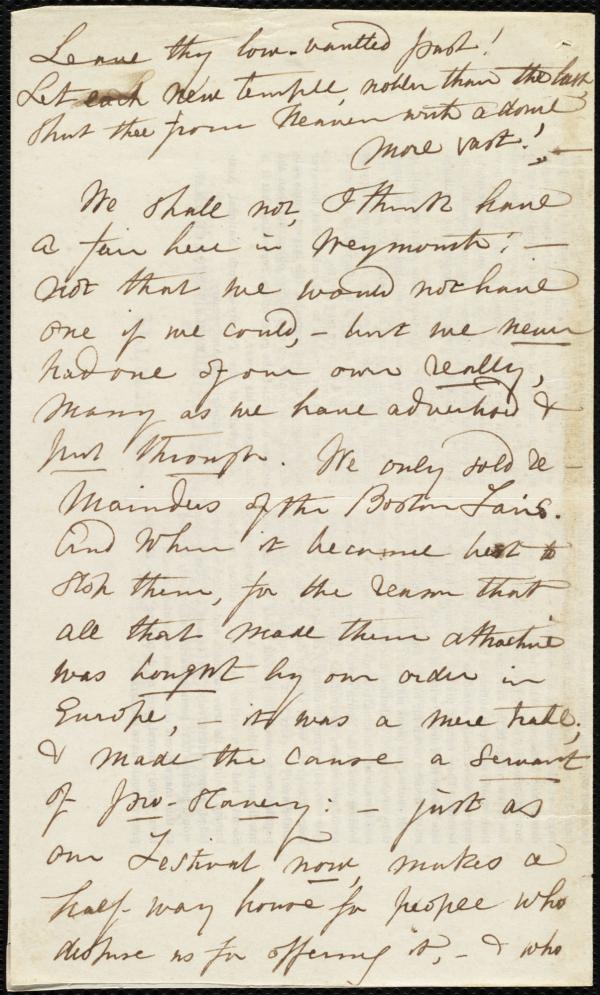 Leave thy low-vaulted past!
Let each new temple, nobler than the last,
Shut thee from Heaven with a dome
more vast!" —
We shall not, I think have
a fair here in Weymouth: —
not that we would not have
one if we could, — but we never
had one of our own really,
many as we have advertised &
put through. We only sold re-
mainders of the Boston Fairs.
And when it became best to
stop them, for the reason that
all that made them attractive
was bought by our order in
Europe, — it was a mere trade;
& made the cause a servant
of pro-slavery: — just as
our Festival now, makes a
half-way house for people who
despise us for offering it, — & who